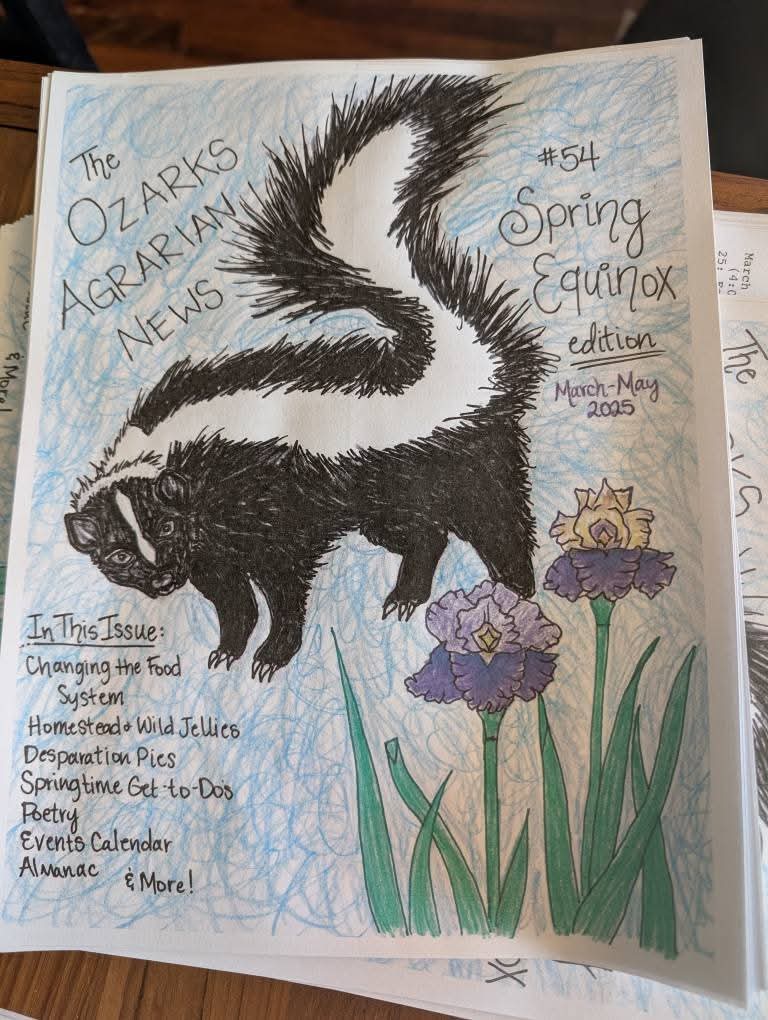 The
OZARKS
AGRARIAN
NEWS
#54
Spring
Equinox
edition
March-May
2025
In This Issue:
Changing the Food
System
Homestead & Wild Jellies
Desparation Pies
Springtime Get-to-Do's
Poetry
Events Calendar
Almanac
& More!
& More!
March
The